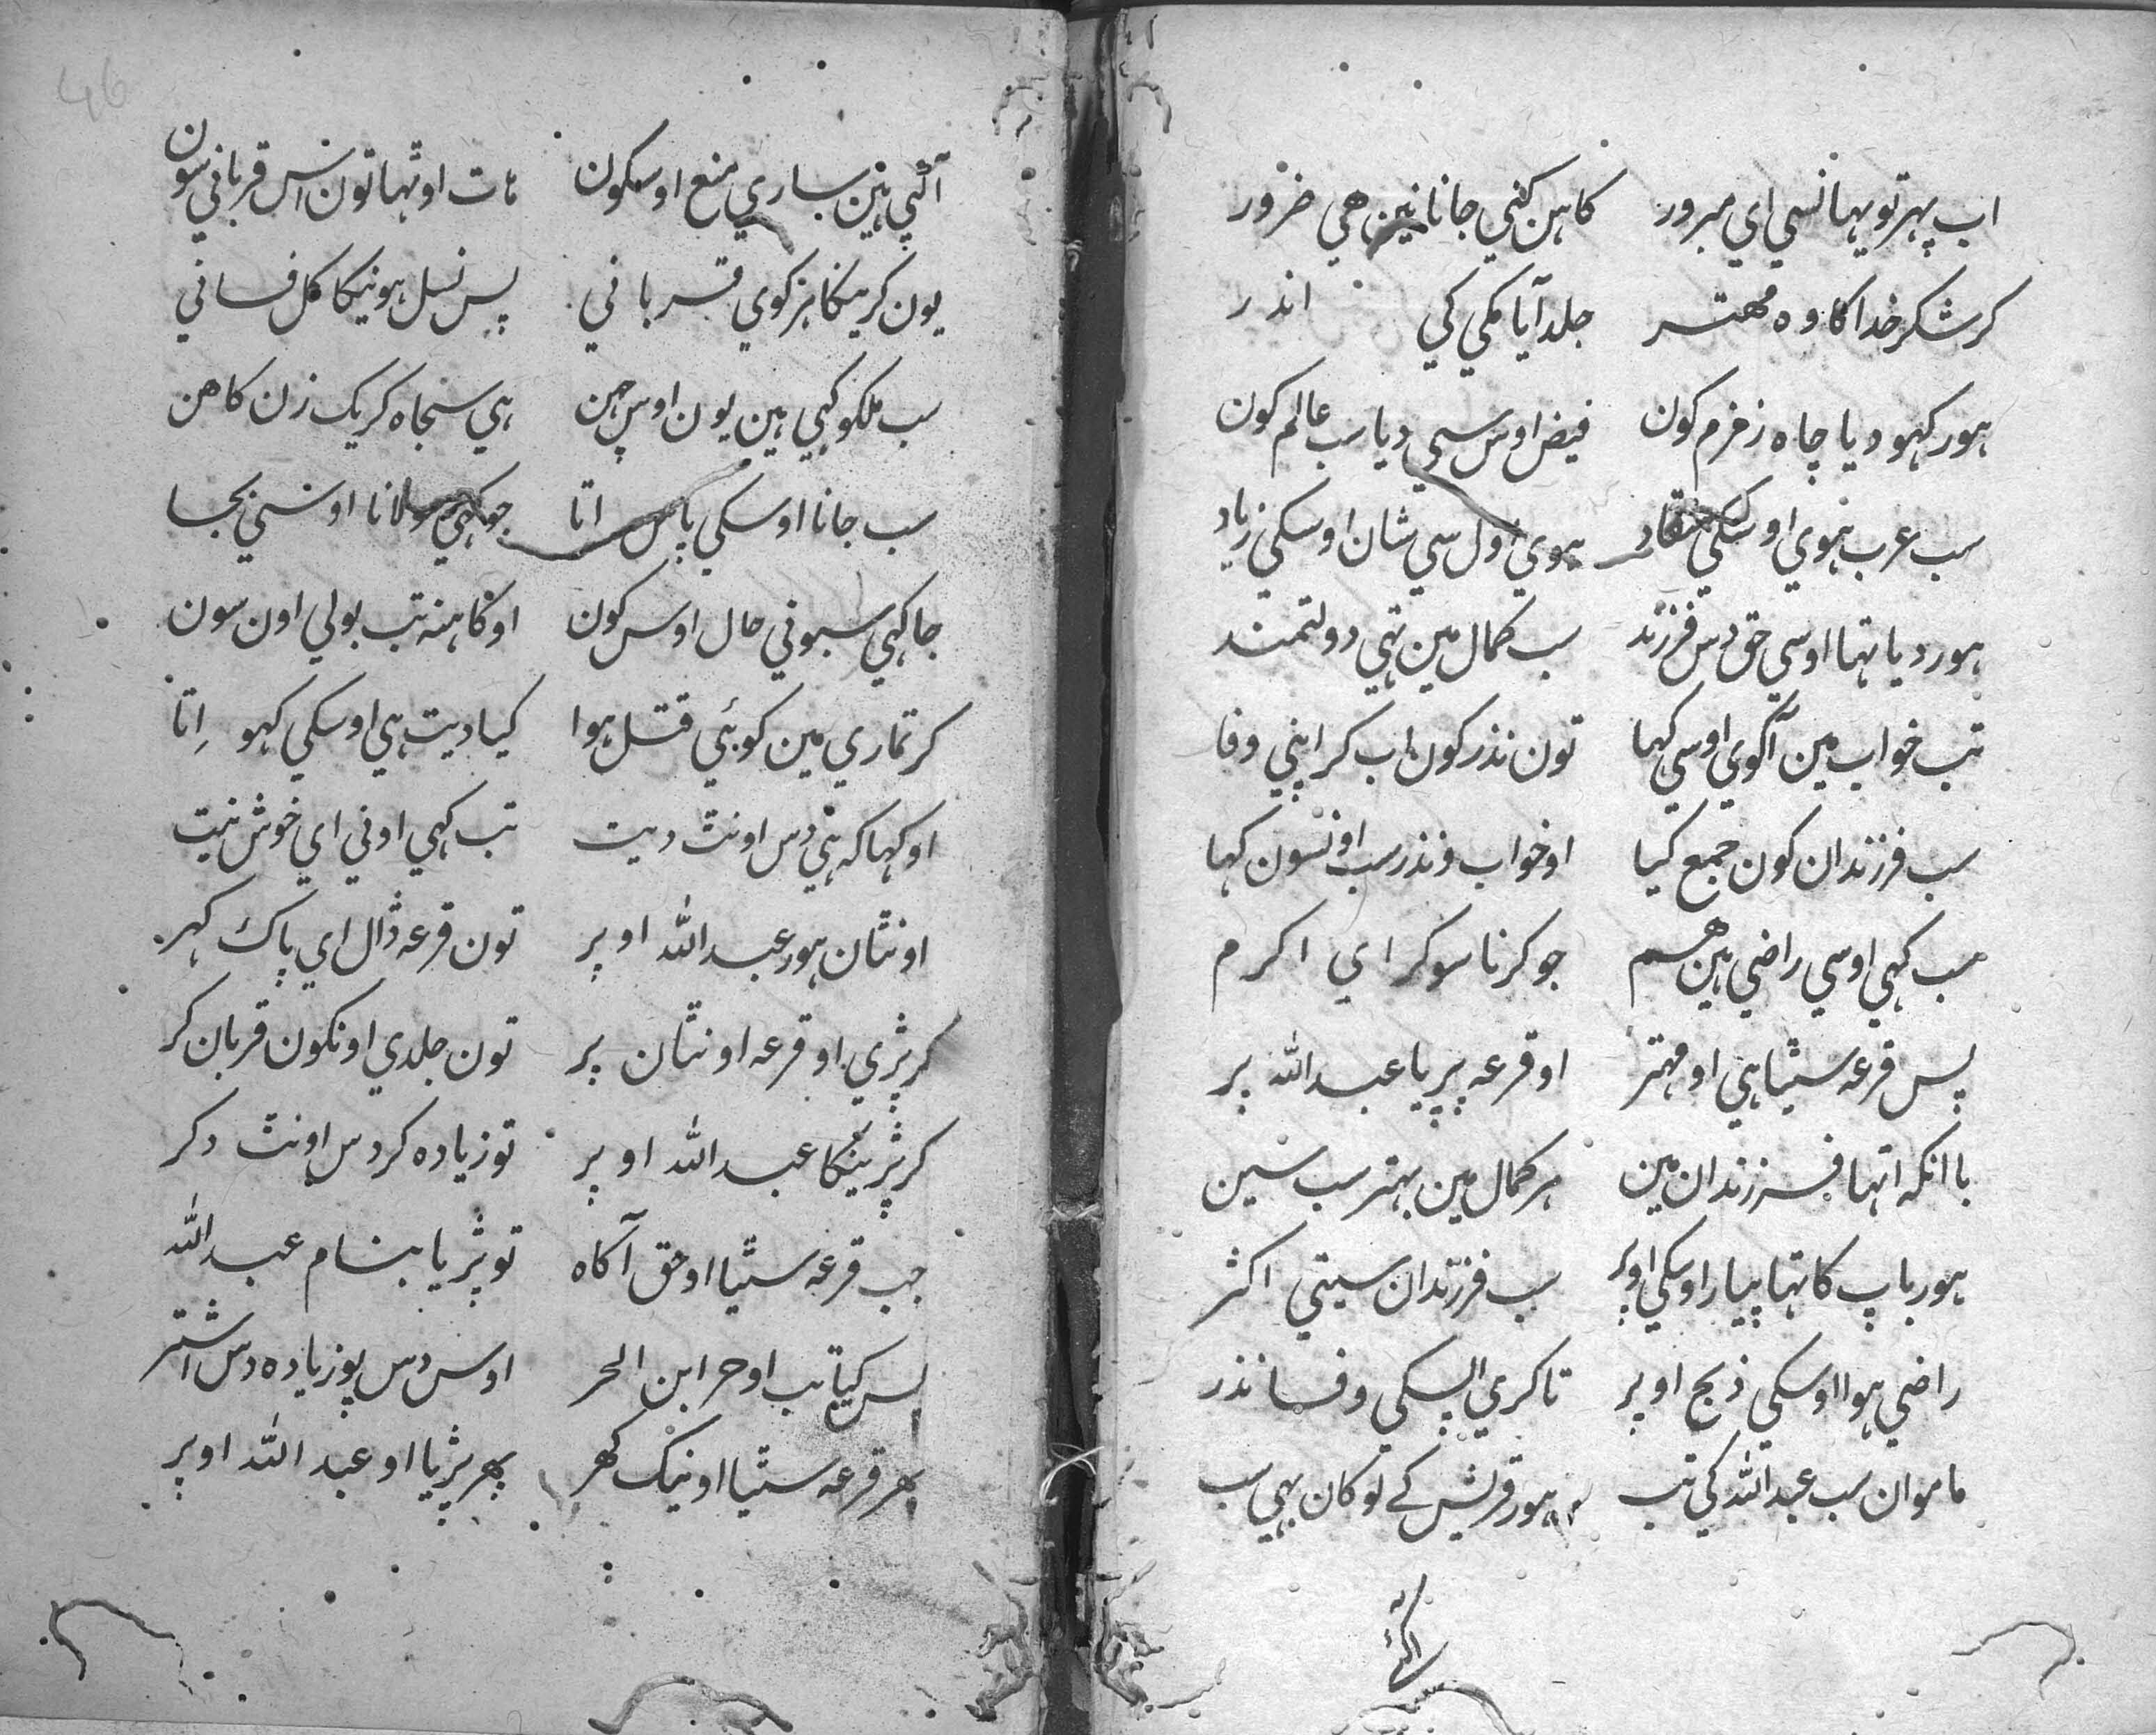 اب پهر تو یهانسي اي مبرور کاهن کني جانا نین هي ضرور
کر شکر خدا کا وه مهتر جلد آیا مکي کي اندر
هور کهودیا چاه زمزم کون فیض اوس سي دیا سب عالم کون
سب عرب هوي اوسکي منقاد هوي اول سي شان اوسکي زیاد
هور دیا تها اوسي حق دس فرزند سب کمال مین تهي دولتمند
تب خواب مین آ کوي اوسي کها تون نذر کون اب کر اپني وفا
سب فرزندان کون جمع کیا او خواب و نذر سب اونسون کها
سب کهي اوسي راضي هین هم جو کرنا سو کر اي اکرم
پس قرعه سٹیا هي او مهتر او قرعه پر یا عبد الله پر
با انکه اتها فرزندان مین هر کمال مین بهتر سب سین
هور باپ کا تها پیار اوسکي اوپر سب فرزندان سیتي اکثر
راضي هوا اوسکي ذبح اوپر تا کري اپسکي وفا نذر
ماموان سب عبد الله کي تب هور قریش کے لوکان بهي سب
آئي هین ساري منع اوسکون هات اوٹها تون اس قرباني سون
یون کرینکا هر کوي قرباني پس نسل هونیکا کل فاني
سب ملکو کهي هین یون اوس حین هي سجاه کر یک زن کاهن
سب جانا اوسکي پاس اتا جو کهي سو لانا اوسني بجا
جا کهي سبوني حال اوس کون او کاهنه تب بولي اون سون
کر تماري مین کوئي قتل هوا کیا دیت هي اوسکي کهو اِتا
او کها که هي دس اونٹ دیت تب کهي اوني اي خوش نیت
اونٹان هور عبد الله اوپر تون قرعه ڈال اي پاک کهر
کر پڑي او قرعه اونٹان پر تون جلدي اونکون قربان کر
کر پڑینکا عبد الله اوپر تو زیاده کر دس اونٹ دکر
جب قرعه سٹیا او حق آکاه تو پڑیا بنام عبد الله
پس کیا تب او حر ابن الحر اوس دس پو زیاده دس اشتر
پهر قرعه سٹیا او نیک کهر پهر پڑیا او عبد الله اوپر